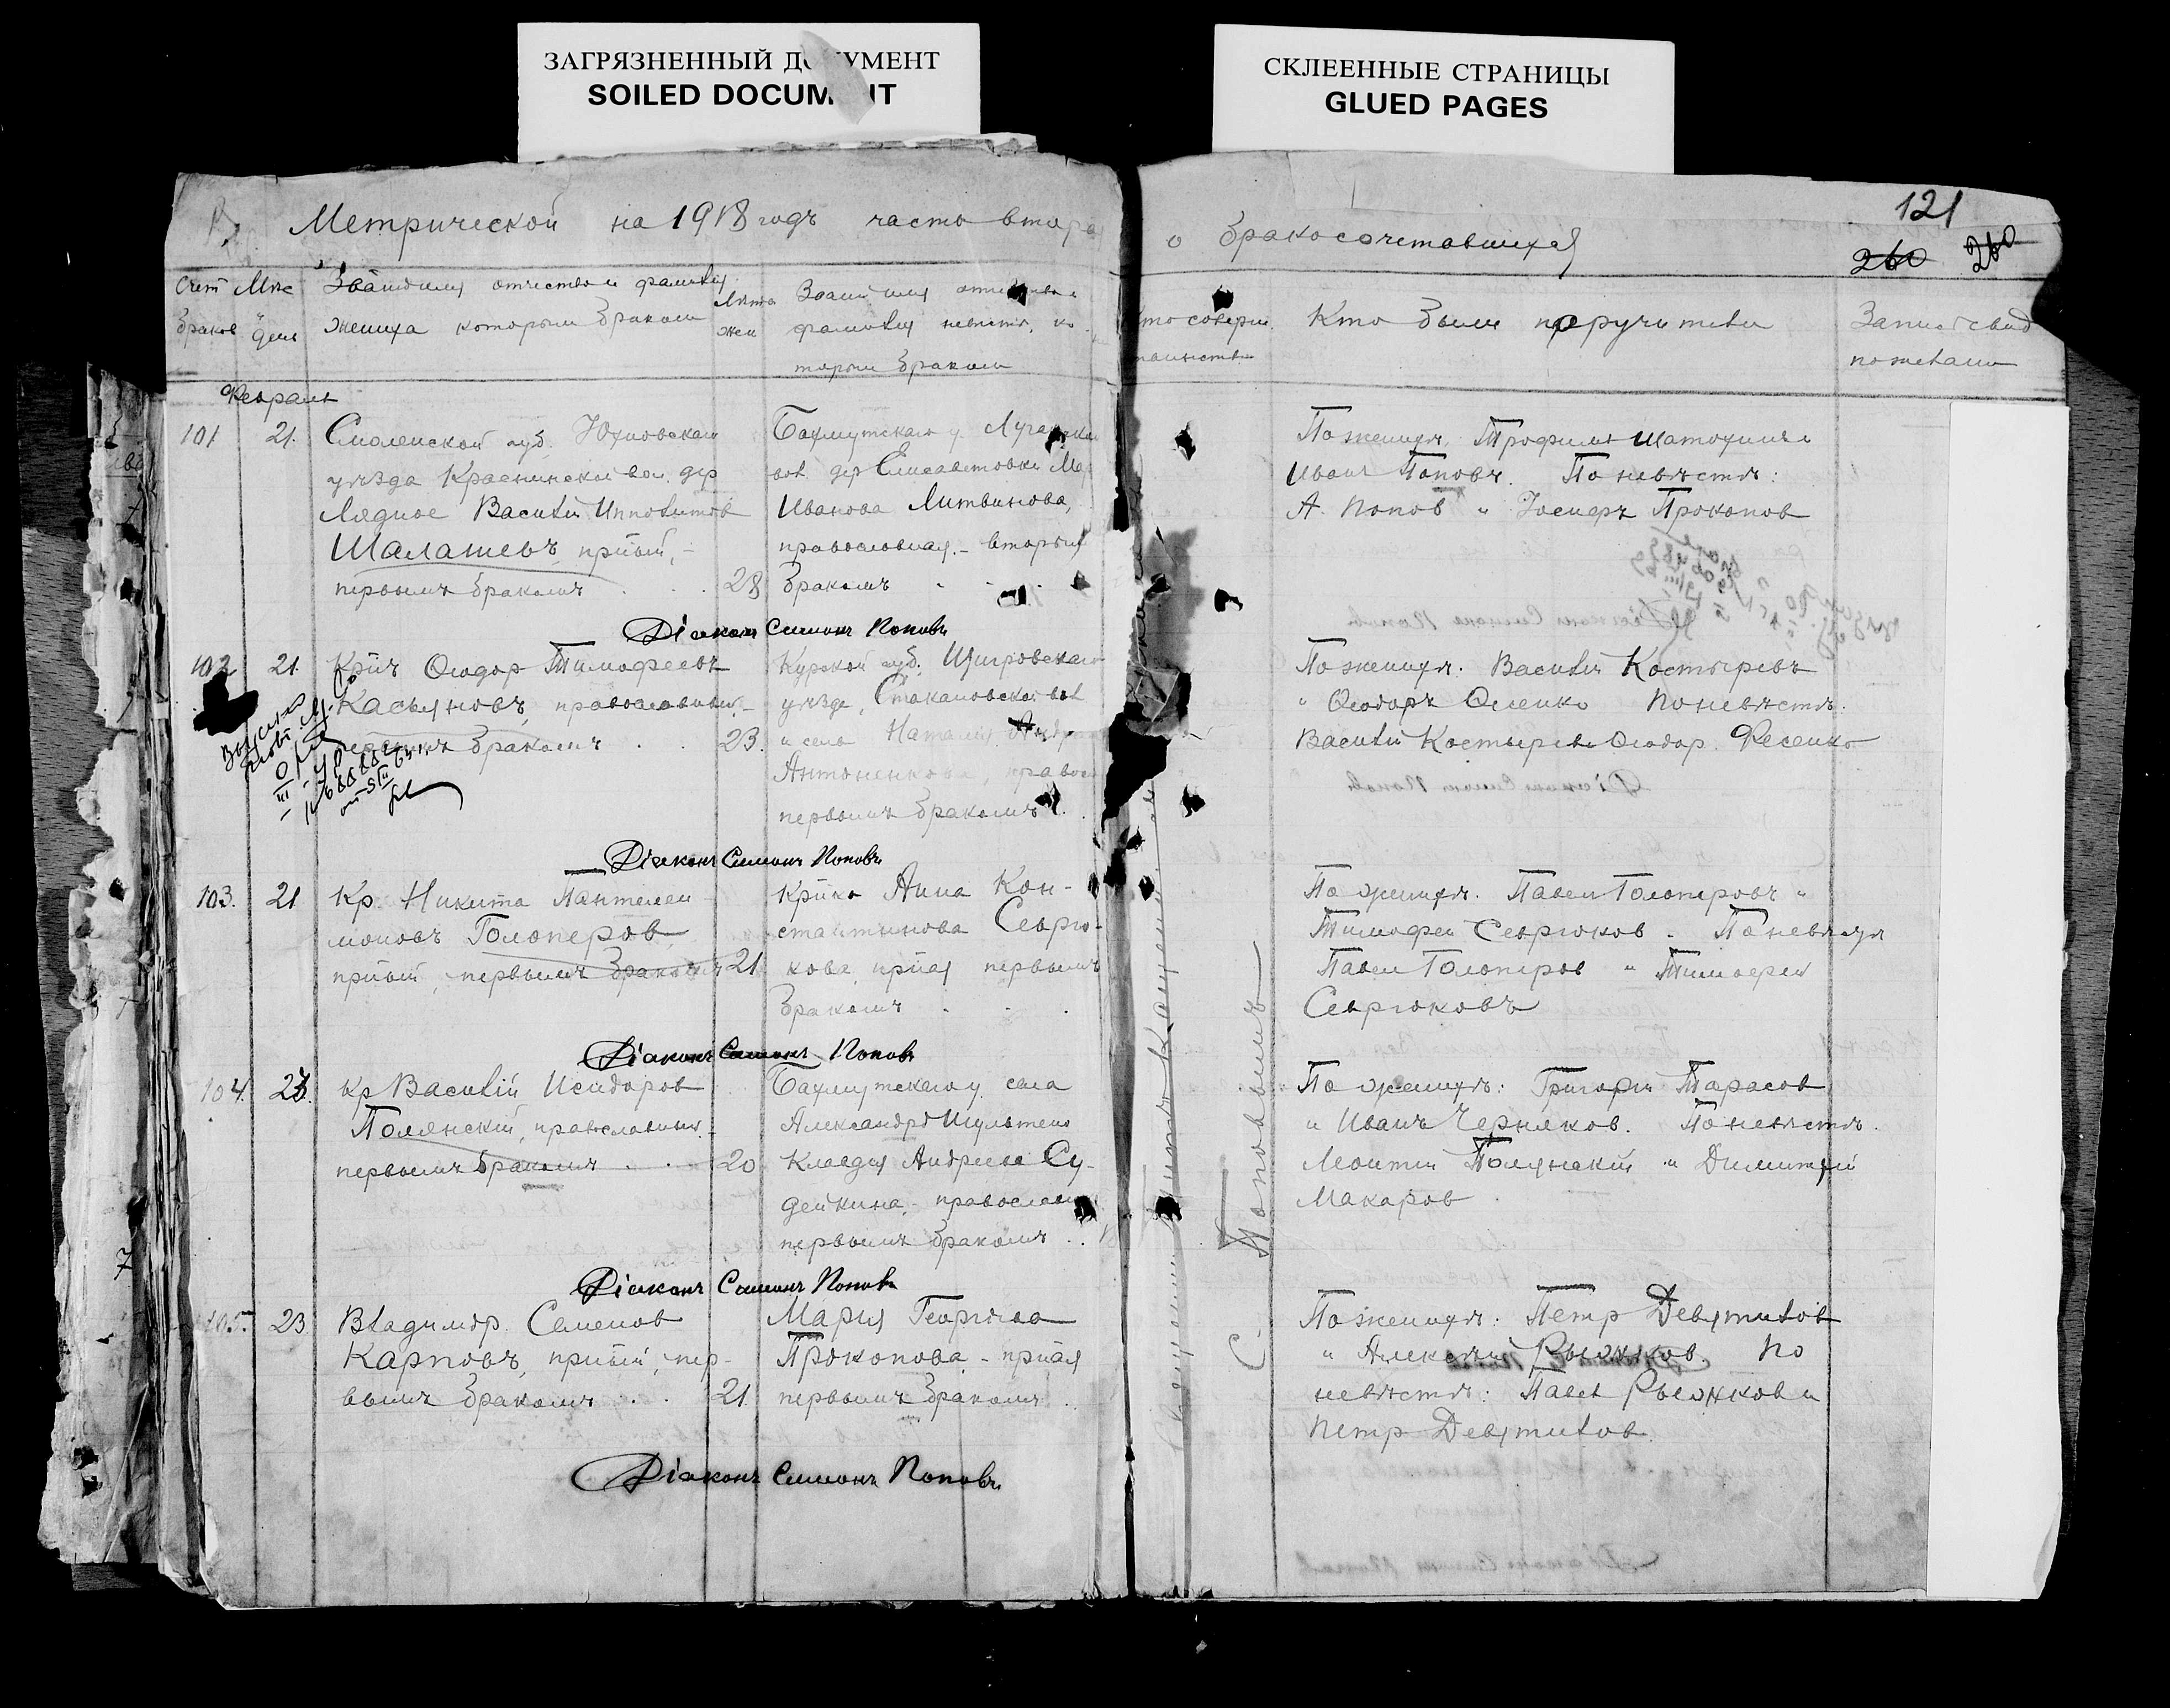 ЗАГРЯЗНЕННЫЙ ДОКУМЕНТ
SOILED DOCUMENT
СКЛЕЕННЫЕ СТРАНИЦЫ
GLUED PAGES
Метрической на 1918 годъ часть втора
о бракосочетавшихся
121
260 260
Счет браков
Мѣс день
Званіе имя отчество и фамилія
жениха которым браком
Лѣта жен
Званіе имя отчество и
фамилія невѣсты, ко
торым браком
Кто соверш.
таинство
Кто были поручители
Запис свид
по желанію
Февраль
101 21.
Смоленской губ. Юхновскаго
уѣзда Краснинской вол. дер
Лядное Василій Ипполитов
Шалашевъ, прѣый, -
первымъ бракомъ . . 28
Бахмутскаго у. Луганской
вол. дер Елисаветовки Мар
Иванова Литвинова,
православная - вторымъ
бракомъ
По женихѣ. Трофимъ Шатохинъ и
Иванъ Поповъ. По невѣстѣ:
А. Попов и Іосифъ Прокопов
Діаконъ Симонъ Поповъ
102 21
Кр-нъ Ѳеодор Тимофеевъ
Касьяновъ, православный, -
первымъ бракомъ . . 23.
Курской губ. Щигровскаго
уѣзда, Стакановской вол
и села Наталія Андр
Антоненкова, правосл
первымъ бракомъ
По женихѣ. Василій Костыревъ
и Ѳеодоръ Ѳесенко По невѣстѣ:
Василій Костырев и Ѳеодор Фесенко
Діаконъ Симонъ Поповъ
103. 21
Кр. Никита Пантелеи
моновъ Голоперов,
прѣый, первымъ бракомъ 21
Кр-нка Анна Кон-
стантинова Севрю-
кова прѣая первымъ
бракомъ . . .
По женихѣ. Павел Голоперовъ и
Тимофей Севрюков. По невѣстѣ
Павел Голоперов и Тимофей
Севрюковъ
Діаконъ Симонъ Поповъ
104. 23.
Кр Василій Исидоров
Полянскій, православный -
первымъ бракомъ . . 20
Бахмутскаго у. села
Александро Шультино
Клавдія Андреева Су-
дейкина, - православн
первымъ бракомъ . .
По женихѣ: Григорій Тарасов
и Иванъ Черняков. По невѣстѣ.
Леонтій Полянскій и Димитрій
Макаров
Діаконъ Симонъ Поповъ
105. 23
Владимір. Семенов
Карповъ, прѣый, пер-
вымъ бракомъ . . 21
Марія Георгіева
Прокопова - прѣая
первымъ бракомъ .
По женихѣ: Петр Девятилов
и Алексѣй Рыжков. По
невѣстѣ: Павел Рыжков и
Петр Девятилов.
Діаконъ Симонъ Поповъ
С. Поповымъ